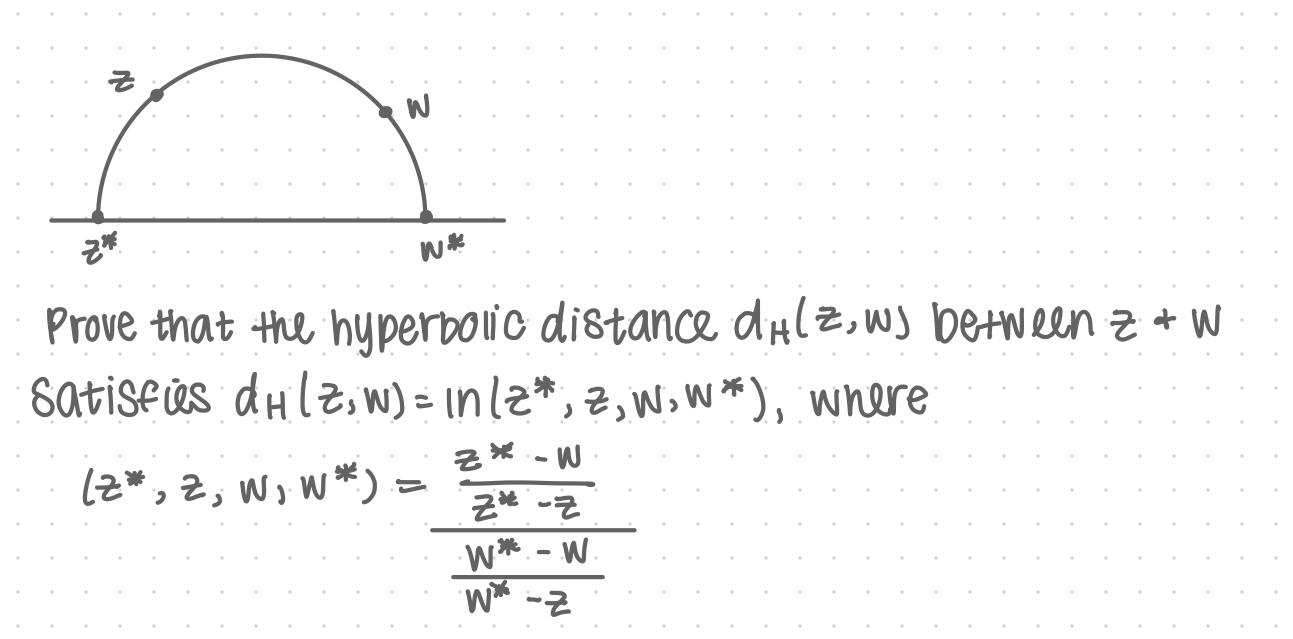 z
w
z*
w*
Prove that the hyperbolic distance d_H(z,w) between z + w
satisfies d_H(z,w) = ln(z*, z, w, w*), where
(z*, z, w, w*) =
z* - w
z* - z
w* - w
w* - z